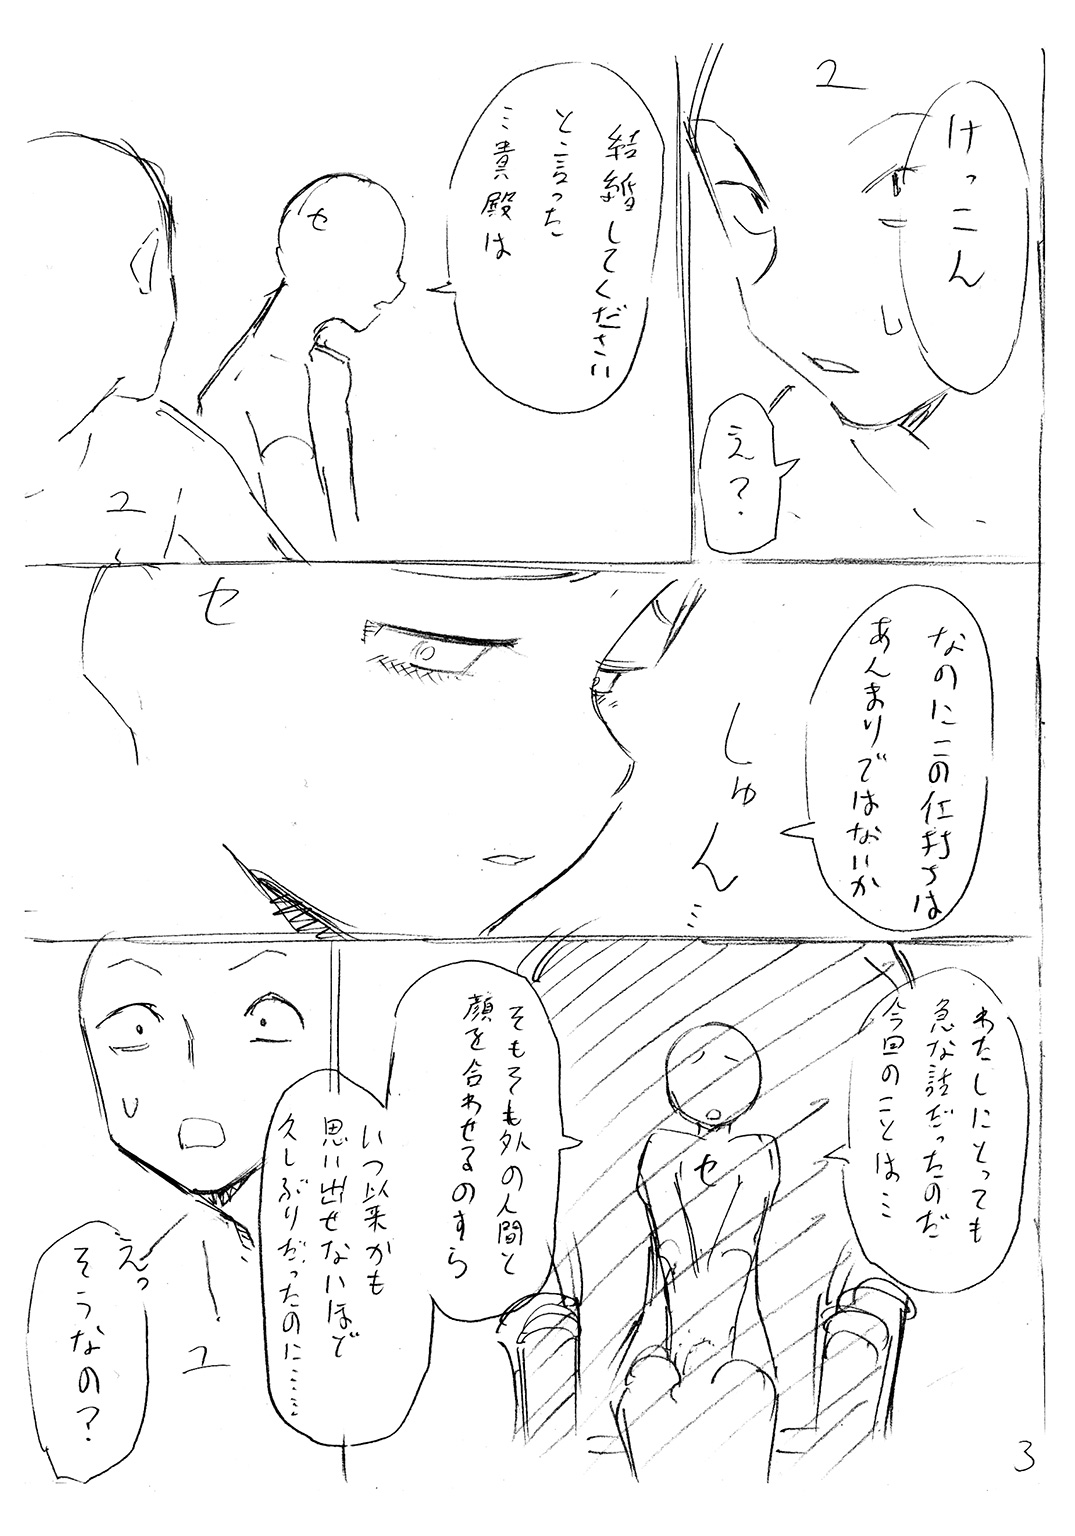 ユ
けっこん
え？
結婚してください
と言った
…貴殿は
セ
ユ
なのにこの仕打ちは
あんまりではないか
しゅん…
セ
わたしにとっても
急な話だったのだ
今回のことは…
セ
そもそも外の人間と
顔を合わせるのすら
いつ以来かも
思い出せないほど
久しぶりだったのに……
えっ
そうなの？
ユ
3